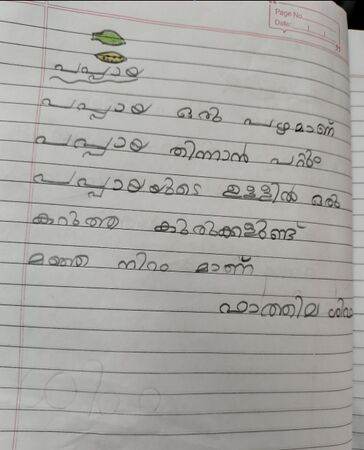 Page No.
Date:
പപ്പായ
പപ്പായ ഒരു പഴമാണ്
പപ്പായ തിന്നാൻ പറ്റും
പപ്പായയുടെ ഉള്ളിൽ ഒരു
കറുത്ത കുരുക്കളുണ്ട്
മഞ്ഞ നിറം മാണ്